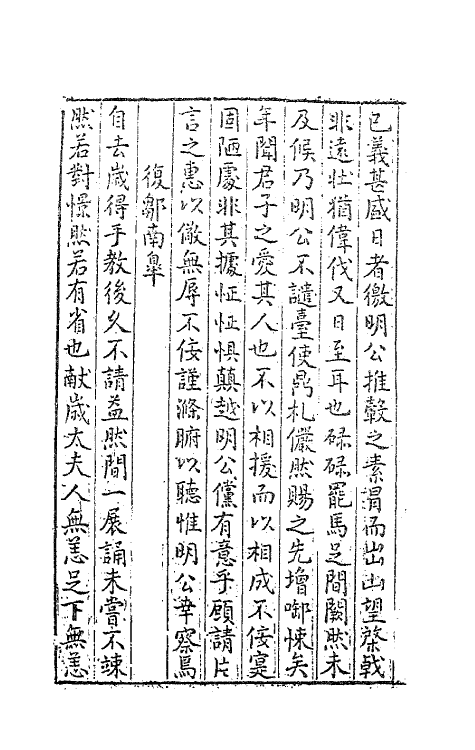 已義甚盛日者徼明公推轂之素謁而出出望棨戟
非遠壯猶偉伐又日至耳也碌碌罷馬足間闕然未
及候乃明公不譴臺使鼎札儼然賜之先增啣悚矣
年聞君子之愛其人也不以相援而以相成不佞寔
固陋處非其據怔怔惧顛越明公儻有意乎顧請片
言之惠以儆無辱不佞謹滌腑以聽惟明公幸察焉
復鄒南臯
自去歲得手教後久不請益然間一展誦未嘗不竦
然若對憬然若有省也献歲太夫人無恙足下無恙